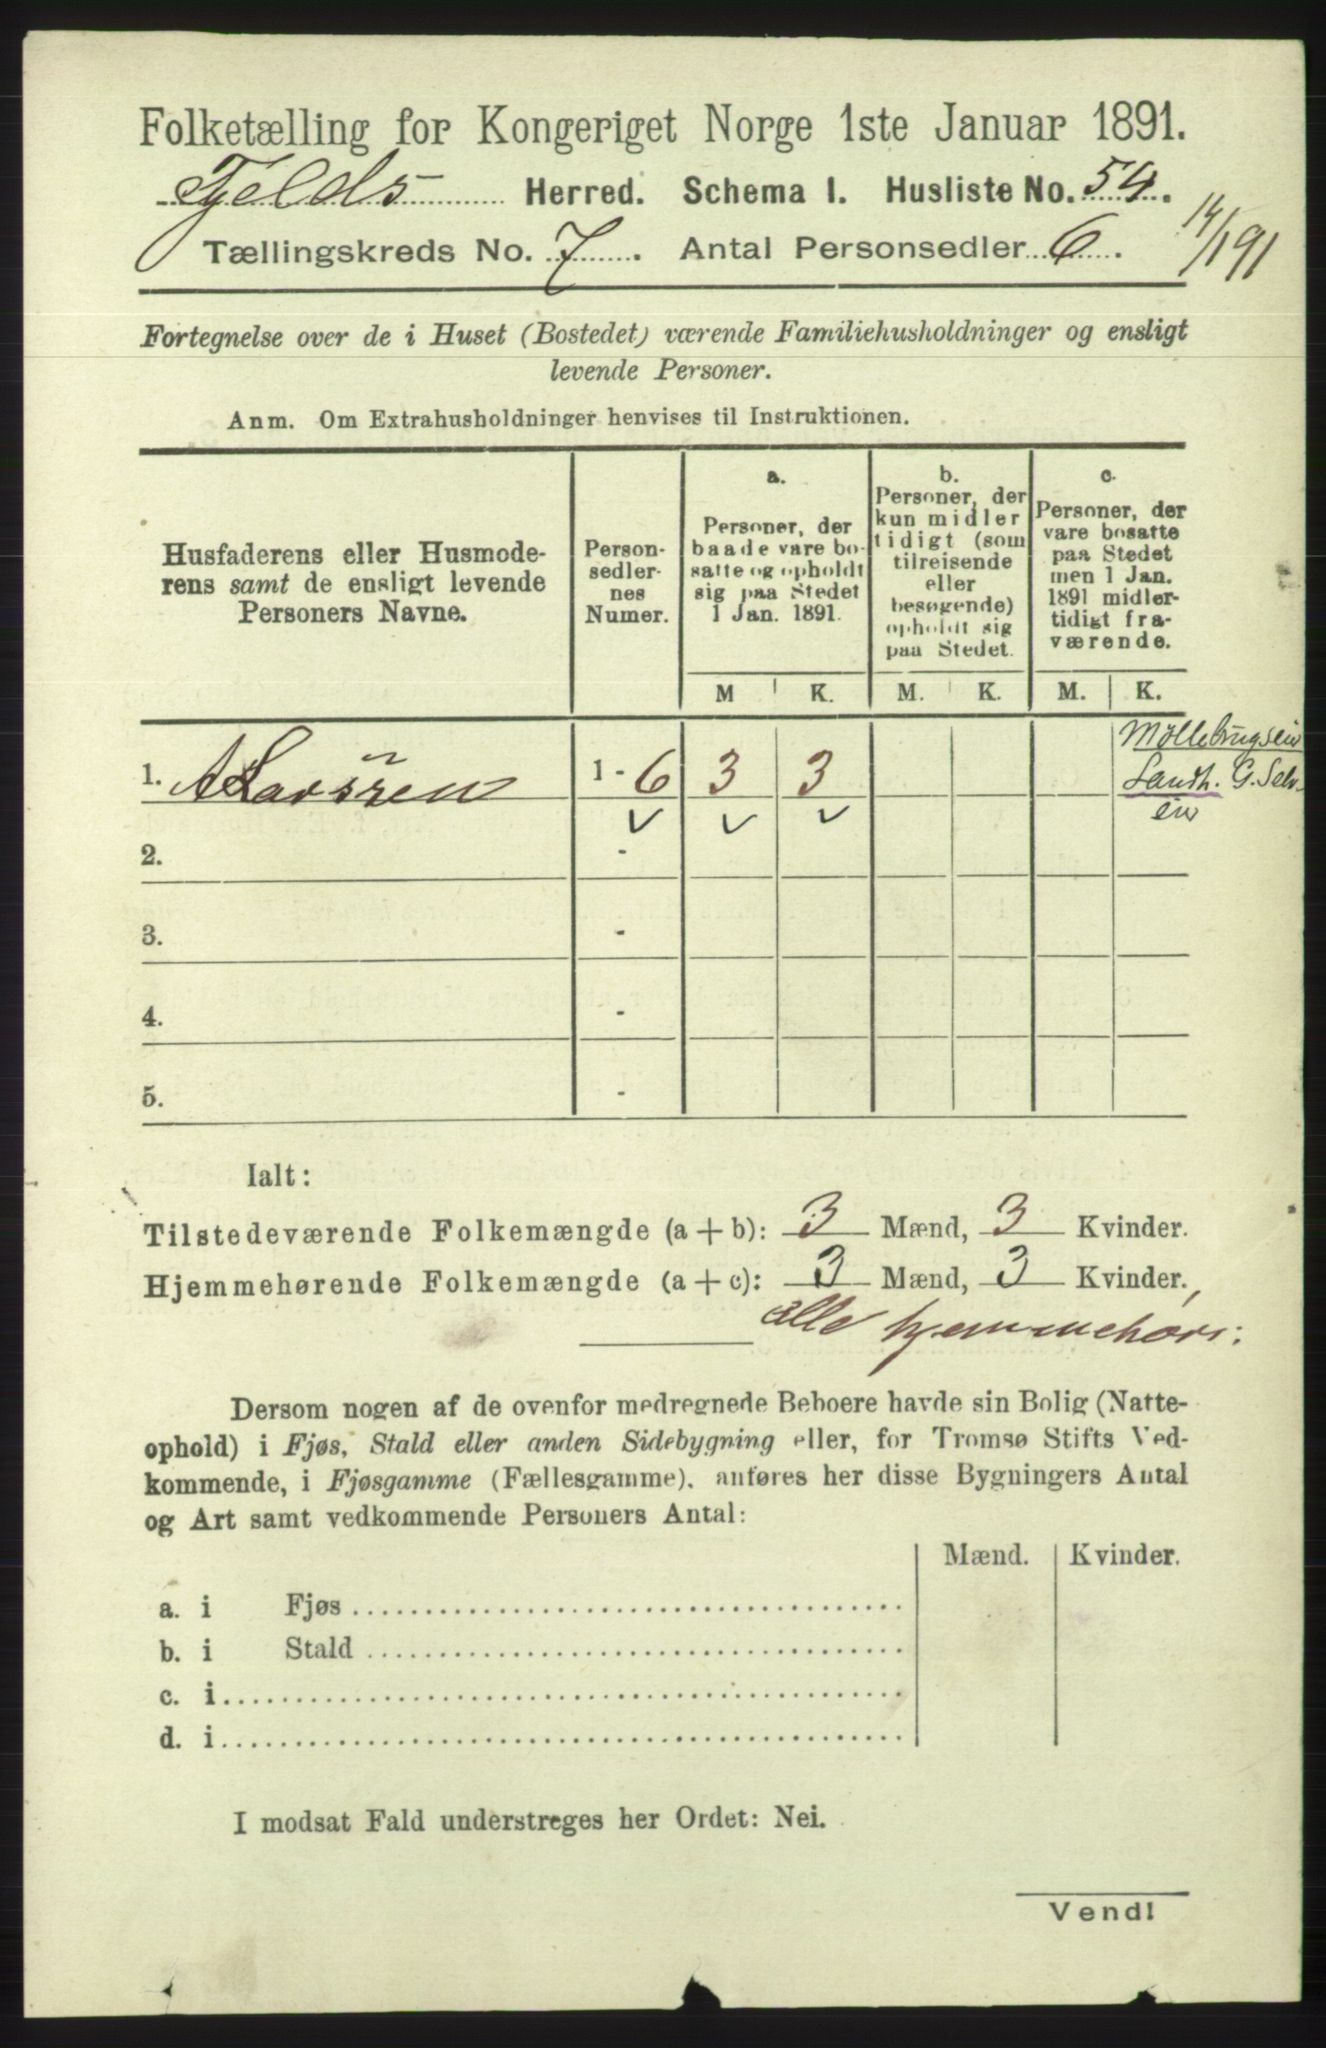 Folketælling for Kongeriget Norge 1ste Januar 1891.
Fjelds Herred. Schema I. Husliste No. 54.
Tællingskreds No. 7. Antal Personsedler 6. 14/1 91
Fortegnelse over de i Huset (Bostedet) værende Familiehusholdninger og ensligt
levende Personer.
Anm. Om Extrahusholdninger henvises til Instruktionen.
Husfaderens eller Husmode-
rens samt de ensligt levende
Personers Navne.
Person-
sedler-
nes
Numer.
a.
Personer, der
baade vare bo-
satte og opholdt
sig paa Stedet
1 Jan. 1891.
b.
Personer, der
kun midler
tidigt (som
tilreisende
eller
besøgende)
opholdt sig
paa Stedet.
c.
Personer, der
vare bosatte
paa Stedet
men 1 Jan.
1891 midler-
tidigt fra-
værende.
M K. M. K. M. K.
1. A Larsen 1 - 6 3 3
Möllebrugseier
Landh. G. Selv-
eier
2. -
3. -
4. -
5. -
Ialt:
Tilstedeværende Folkemængde (a + b): 3 Mænd, 3 Kvinder.
Hjemmehørende Folkemængde (a + c): 3 Mænd, 3 Kvinder.
alle hjemmehør:
Dersom nogen af de ovenfor medregnede Beboere havde sin Bolig (Natte-
ophold) i Fjøs, Stald eller anden Sidebygning eller, for Tromsø Stifts Ved-
kommende, i Fjøsgamme (Fællesgamme), anføres her disse Bygningers Antal
og Art samt vedkommende Personers Antal:
Mænd. Kvinder.
a. i Fjøs
b. i Stald
c. i
d. i
I modsat Fald understreges her Ordet: Nei.
Vend!